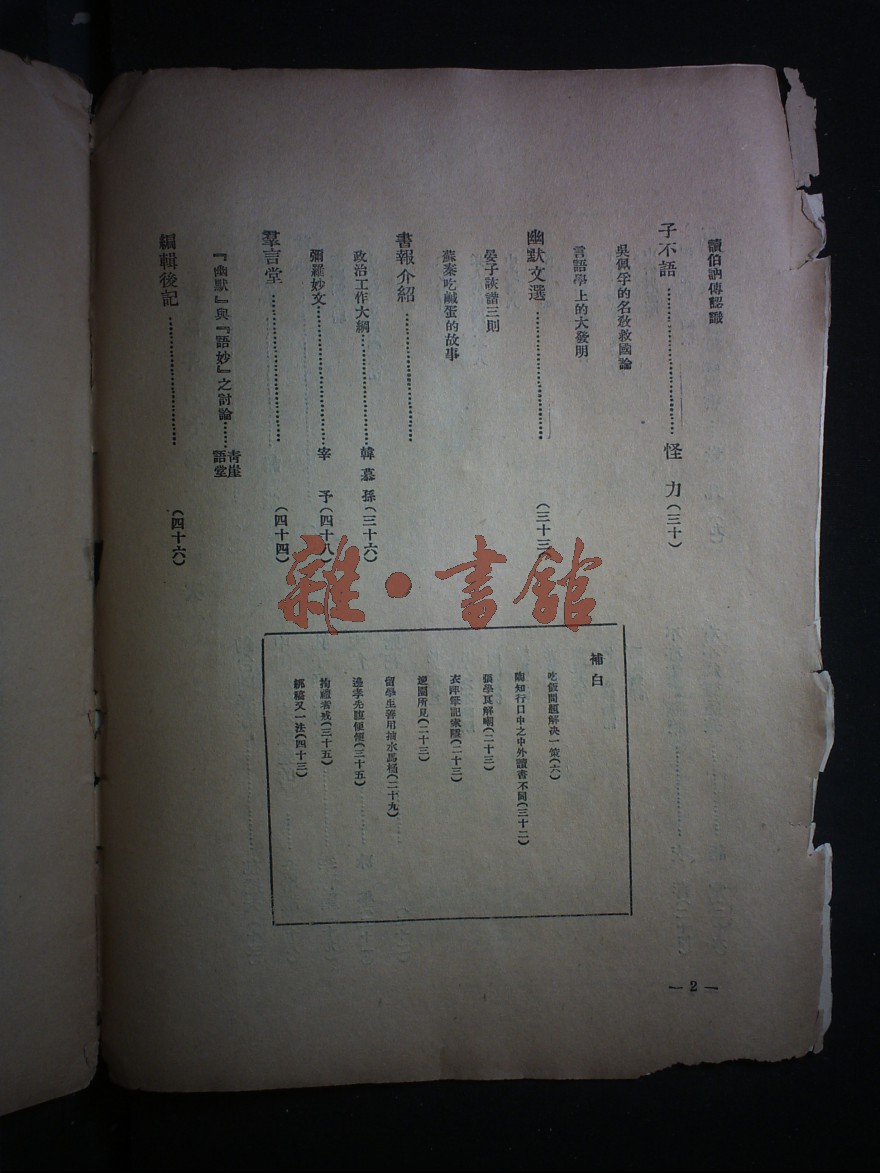 讀伯訥傳認識
子不語……………………怪　力(三十)
吳佩孚的名敎救國論
言語學上的大發明
幽默文選……………………(三十三)
晏子詼諧三則
蘇秦吃鹹蛋的故事
書報介紹……………………
政治工作大綱……………………韓慕孫(三十六)
彌羅妙文……………………宰　予(四十八)
羣言堂……………………(四十四)
『幽默』與『語妙』之討論……青崖 語堂
編輯後記……………………(四十六)
補白
吃飯問題解决一策(六)
陶知行口中之中外讀書不同(三十二)
張學良解嘲(二十三)
衣萍筆記索隱(二十三)
遊園所見(二十三)
留學生善用抽水馬桶(二十九)
邊孝先腹便便(三十五)
拘禮者戒(三十五)
綁稿又一法(四十三)
— 2 —
雜·書館